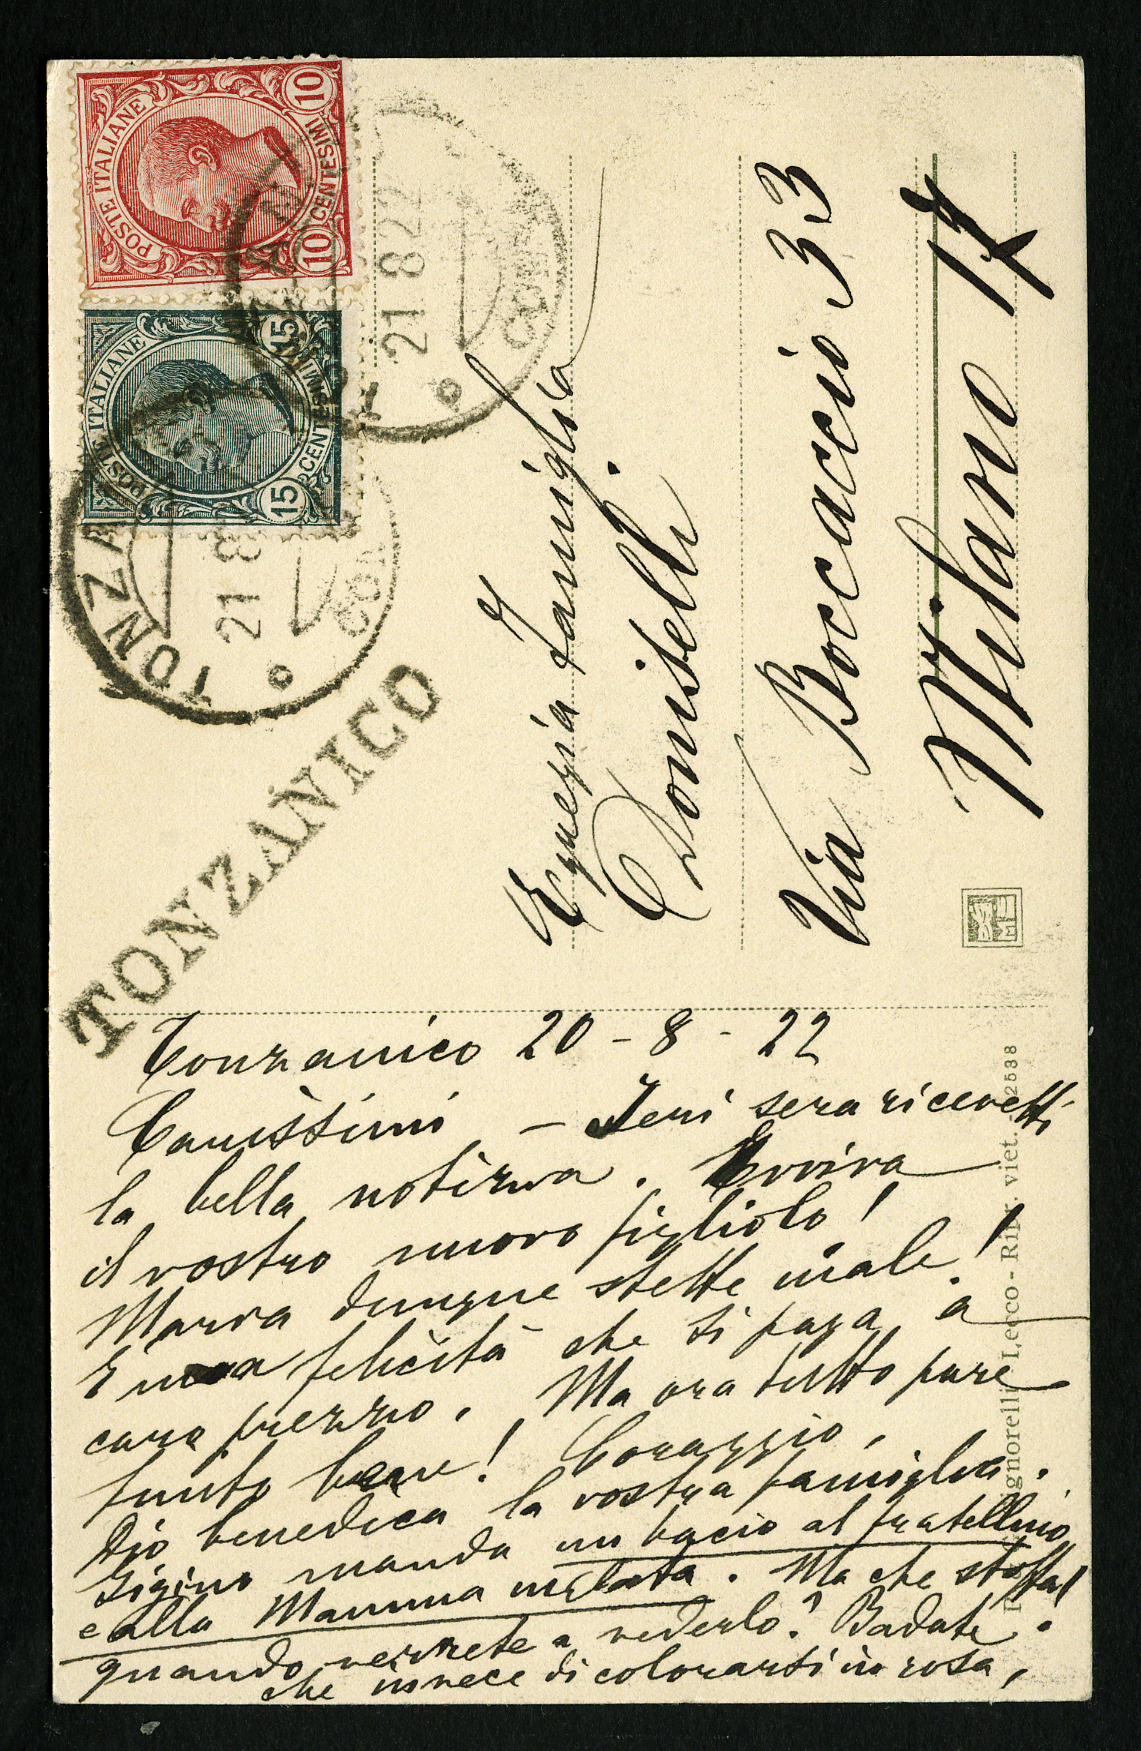 POSTE ITALIANE
10 CENTESIMI 10
POSTE ITALIANE
15 CENTESIMI 15
21 8 22
TONZA
21 8
TONZANICO
Egregia Famiglia
Doniselli
Via Boccaccio 33
Milano 17
Tonzanico 20-8-22
Carissimi, - Ieri sera ricevetti
la bella notizia. Evviva
il vostro nuovo figliolo!
Maria dunque stette male!
È una felicità che si paga a
caro prezzo. Ma ora tutto pare
finito bene! Coraggio,
Dio benedica la vostra famiglia.
Gigino manda un bacio al fratellino
e alla Mamma malata. Ma che stoffa!
quando verrete a vederlo? Badate
che invece di colorarsi in rosa,
gnorelli, Lecco - Ripr. viet. 2538